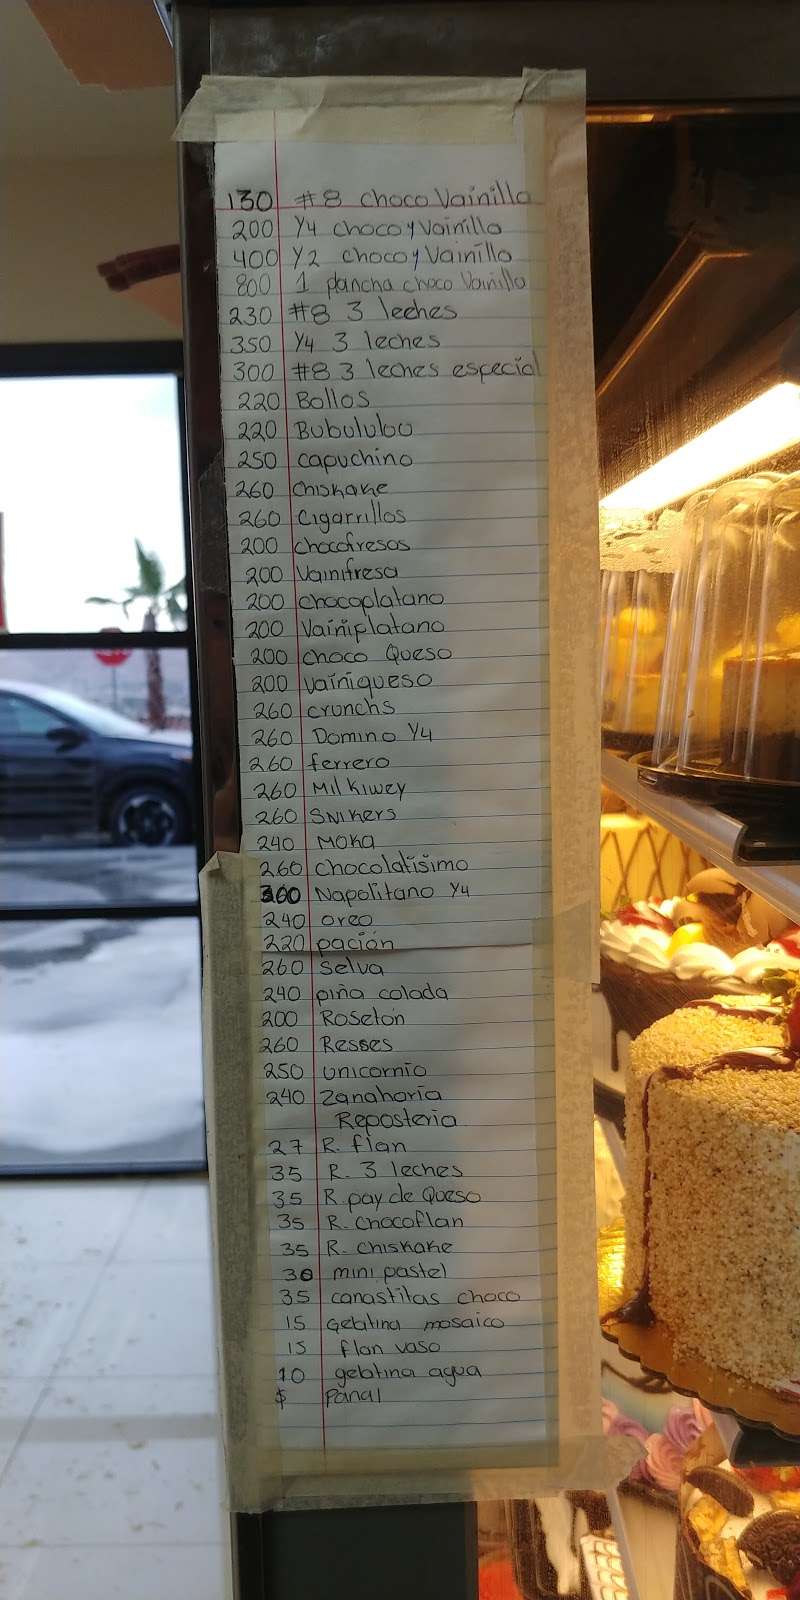 130 #8 choco Vainilla
200 Y4 choco y Vainilla
400 Y2 choco y Vainilla
800 1 plancha choco Vainilla
230 #8 3 leches
350 Y4 3 leches
300 #8 3 leches especial
220 Bollos
220 Bubulubu
250 capuchino
260 chiskake
260 Cigarrillos
200 chocofresas
200 Vainifresa
200 chocoplatano
200 Vainiplatano
200 choco Queso
200 vainiqueso
260 crunchs
260 Domino Y4
260 ferrero
260 Milkiwey
260 Snikers
240 Moka
260 chocolatisimo
360 Napolitano Y4
240 oreo
220 pación
260 selva
240 piña colada
200 Roseton
260 Resses
250 unicornio
240 Zanahoria
Reposteria
27 R. flan
35 R. 3 leches
35 R. pay de Queso
35 R. chocoflan
35 R. chiskake
30 mini pastel
35 canastitas choco
15 Gelatina mosaico
15 flan vaso
10 gelatina agua
$ Panal